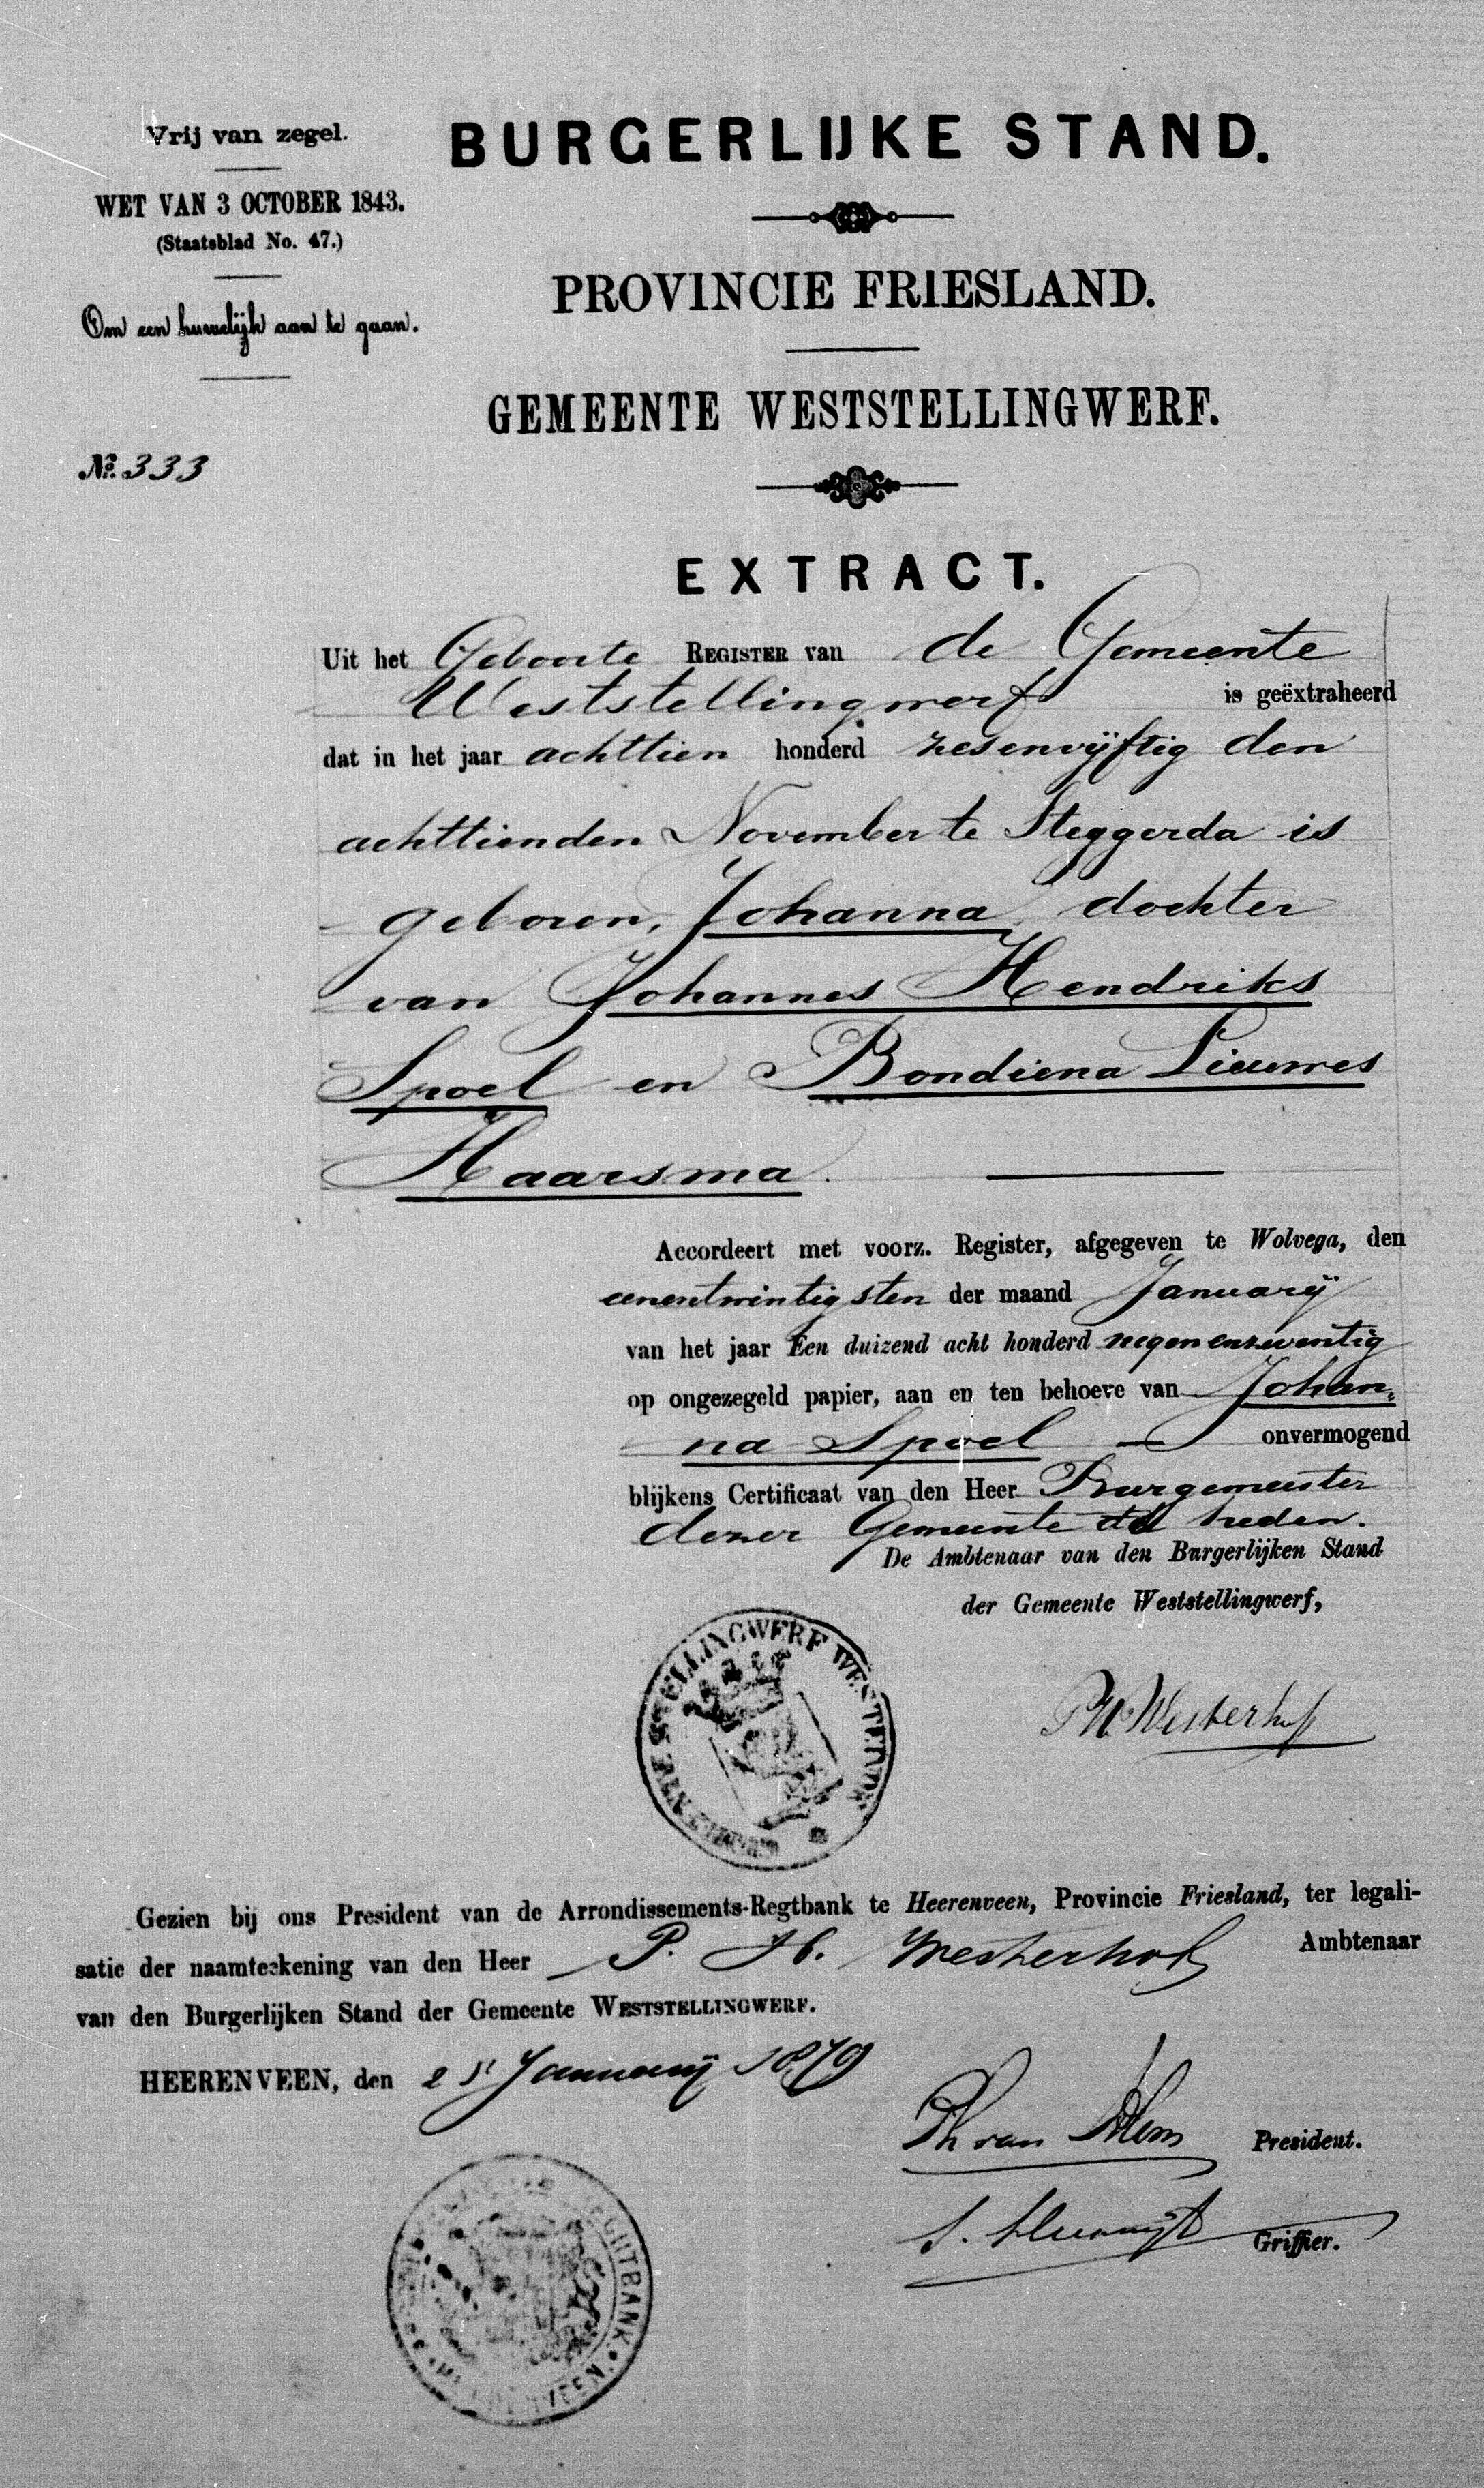 Vrij van zegel.
WET VAN 3 OCTOBER 1843.
(Staatsblad No. 47.)
Om een huwelijk aan te gaan.
No. 333
BURGERLIJKE STAND.
PROVINCIE FRIESLAND.
GEMEENTE WESTSTELLINGWERF.
EXTRACT.
Uit het Geboorte REGISTER van de Gemeente
Weststellingwerf is geëxtraheerd
dat in het jaar achttien honderd zesenvijftig den
achttienden November te Steggerda is
geboren, Johanna, dochter
van Johannes Hendriks
Spoel en Bondiena Lieuwes
Haarsma.
Accordeert met voorz. Register, afgegeven te Wolvega, den
eenentwintigsten der maand Januarij
van het jaar Een duizend acht honderd negenenzeventig
op ongezegeld papier, aan en ten behoeve van Johan-
na Spoel onvermogend
blijkens Certificaat van den Heer Burgemeester
dezer Gemeente dd heden.
De Ambtenaar van den Burgerlijken Stand
der Gemeente Weststellingwerf,
GEMEENTE STELLINGWERF WESTEINDE
PH Westerhof
Gezien bij ons President van de Arrondissements-Regtbank te Heerenveen, Provincie Friesland, ter legali-
satie der naamteekening van den Heer P. H. Westerhof Ambtenaar
van den Burgerlijken Stand der Gemeente WESTSTELLINGWERF.
HEERENVEEN, den 21 Januarij 1879
Ph van Blom President.
Griffier.